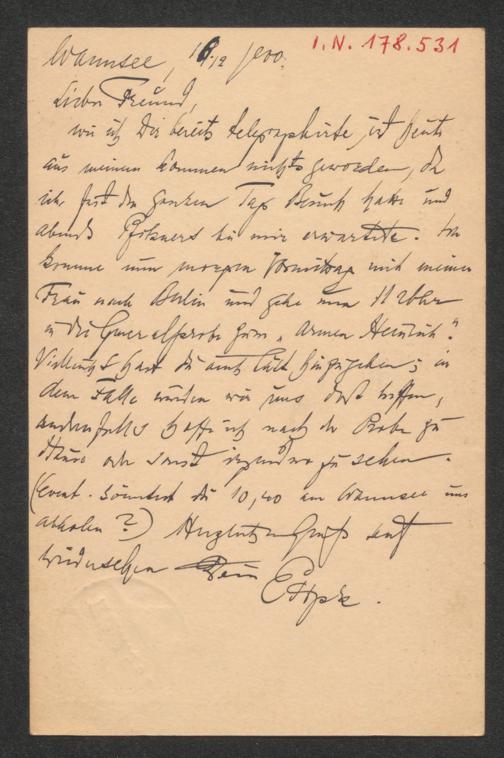 I.N. 178.531
Wannsee, 16/12 1900.
Lieber Freund,
wie ich Dir bereits telegraphirte, ist heute
aus meinem Kommen nichts geworden, da
ich fast den ganzen Tag Besuch hatte und
abends Pfitzners bei mir erwartete. Ich
komme nun morgen Vormittag mit meiner
Frau nach Berlin und gehe um 11 Uhr
in die Generalprobe zum „Armen Heinrich".
Vielleicht hast Du auch Lust hinzugehen; in
dem Falle würden wir uns dort treffen,
andernfalls hoffe ich nach der Probe zu
Hause oder sonst irgendwo zu sehen.
(Event. könntest du 10,40 am Wannsee uns
abholen?) Herzlichen Gruß auf
Wiedersehen Dein